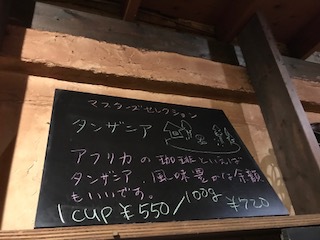 マスターズセレクション
タンザニア
アフリカの珈琲といえば
タンザニア。風味豊かは余韻
もいいです。
1cup ¥550/100g ¥720